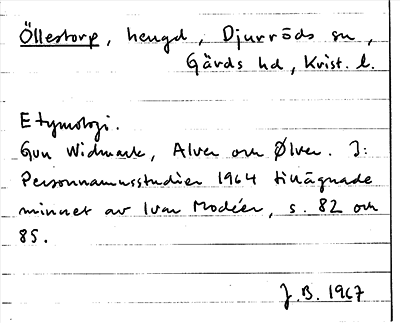 Öllestorp, hemgd, Djurröds sn,
Gärds hd, Krist. l.
Etymologi.
Gun Widmark, Alver och Ølver. I:
Personnamnsstudier 1964 tillägnade
minnet av Ivar Modéer, s. 82 och
85.
J.B. 1967